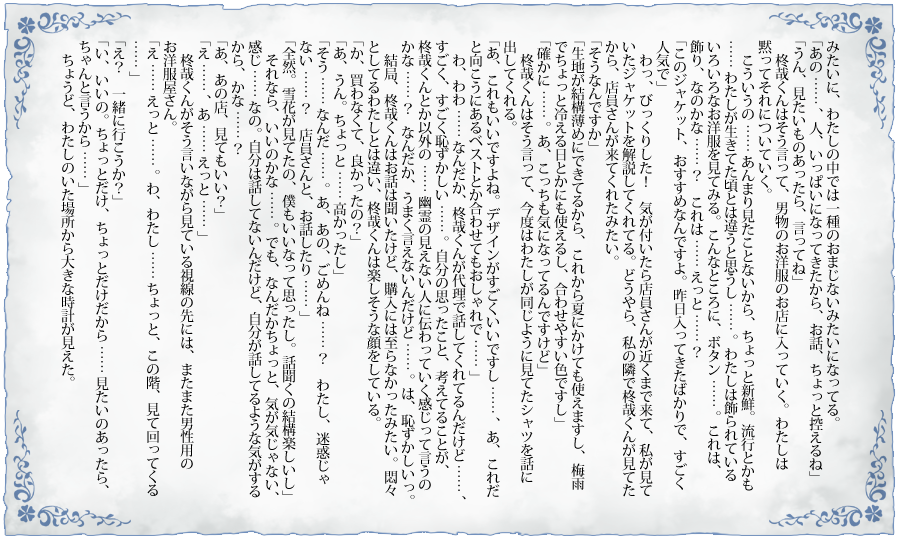 みたいに、わたしの中では一種のおまじないみたいになってる。
「あの……、人、いっぱいになってきたから、お話、ちょっと控えるね」
「うん。見たいものあったら、言ってね」
　柊哉くんはそう言って、男物のお洋服のお店に入っていく。わたしは
黙ってそれについていく。
　こういうの……あんまり見たことないから、ちょっと新鮮。流行とかも
……わたしが生きてた頃とは違うと思うし……。わたしは飾られている
いろいろなお洋服を見てみる。こんなところに、ボタン……。これは、
飾り、なのかな……？　これは……えっと……？
「このジャケット、おすすめなんですよ。昨日入ってきたばかりで、すごく
人気で」
　わっ、びっくりした！　気が付いたら店員さんが近くまで来て、私が見て
いたジャケットを解説してくれてる。どうやら、私の隣で柊哉くんが見てた
から、店員さんが来てくれたみたい。
「そうなんですか」
「生地が結構薄めにできてるから、これから夏にかけても使えますし、梅雨
でちょっと冷える日とかにも使えるし、合わせやすい色ですし」
「確かに……。あ、こっちも気になってるんですけど」
　柊哉くんはそう言って、今度はわたしが同じように見てたシャツを話に
出してくれる。
「あ、これもいいですよね。デザインがすごくいいですし……、あ、これだ
と向こうにあるベストとか合わせてもおしゃれで……」
　わ、わわ……なんだか、柊哉くんが代理で話してくれてるんだけど……、
すごく、すごく恥ずかしい……。自分の思ったこと、考えてることが、
柊哉くんとか以外の……幽霊の見えない人に伝わっていく感じって言うの
かな……？　なんだか、うまく言えないんだけど……。は、恥ずかしいっ。
　結局、柊哉くんはお話は聞いたけど、購入には至らなかったみたい。悶々
としてるわたしとは違い、柊哉くんは楽しそうな顔をしている。
「か、買わなくて、良かったの？」
「あ、うん。ちょっと……高かったし」
「そう……なんだ……。あ、あの、ごめんね……？　わたし、迷惑じゃ
ない……？　店員さんと、お話したり……」
「全然。雪花が見てたの、僕もいいなって思ったし。話聞くの結構楽しいし」
　それなら、いいのかな……。でも、なんだかちょっと、気が気じゃない、
感じ……なの。自分は話してないんだけど、自分が話してるような気がする
から、かな……？
「あ、あの店、見てもいい？」
「え……、あ……えっと……」
　柊哉くんがそう言いながら見ている視線の先には、またまた男性用の
お洋服屋さん。
「え……えっと……。わ、わたし……ちょっと、この階、見て回ってくる
……」
「え？　一緒に行こうか？」
「い、いいの。ちょっとだけ、ちょっとだけだから……見たいのあったら、
ちゃんと言うから……」
　ちょうど、わたしのいた場所から大きな時計が見えた。